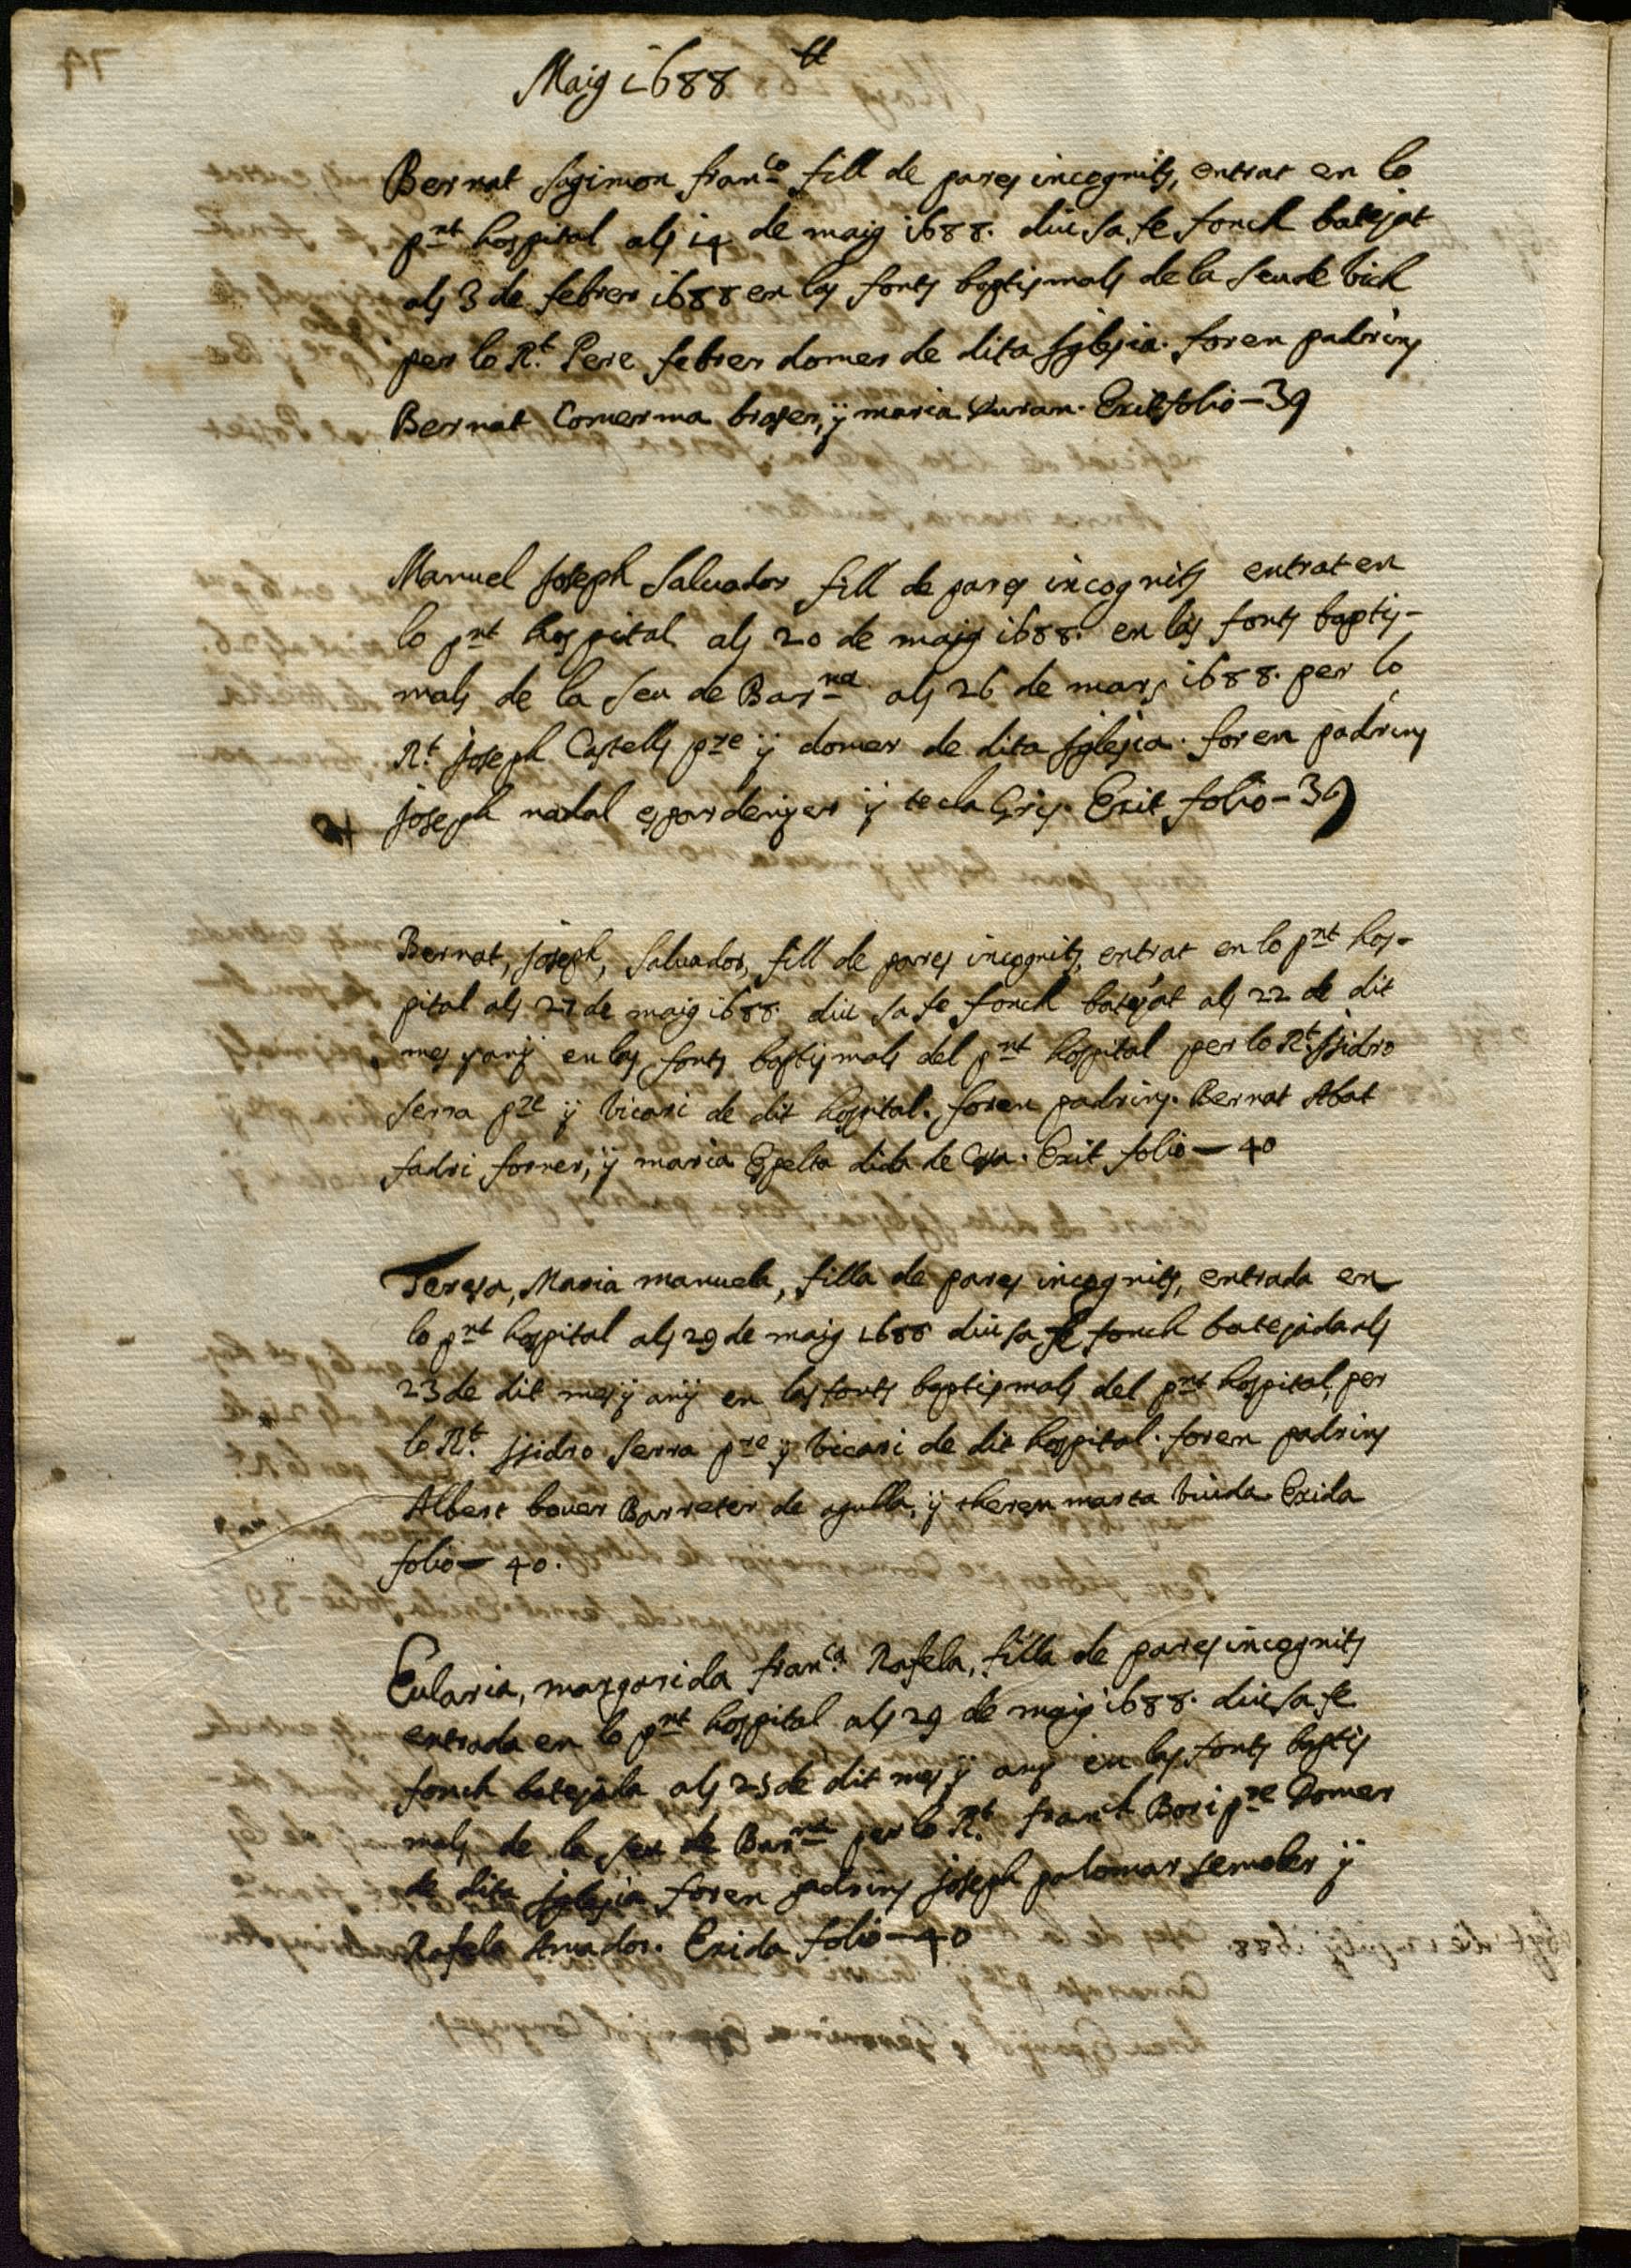 Maig 1688 tt
Bernat sagimon fran.co fill de pares incognits, entrat en lo
pnt hospital als 14 de maig 1688. diu sa fe fonch batejat
als 3 de febrer 1688 en las fonts baptismals de la seu de Vich
per lo Rt. Pere febrer domer de dita Iglesia. foren padrins
Bernat Comerma braser, y maria Duran. Exit folio - 39
Manuel Joseph Salvador fill de pares incognits entrat en
lo pnt hospital als 20 de maig 1688. en las fonts baptis-
mals de la seu de Barna als 26 de mars 1688. per lo
Rt. Joseph Castells pre y domer de dita Iglesia. foren padrins
joseph nadal espardenyer y tecla Gris. Exit folio - 39
Bernat, joseph, Salvador, fill de pares incognits, entrat en lo pnt hos-
pital als 27 de maig 1688. diu sa fe fonch batejat als 22 de dit
mes y any en las fonts baptismals del pnt hospital per lo Rt. Isidro
Serra pre y Vicari de dit hospital. foren padrins. Bernat Abat
fadri forner, y maria Espelta dida de Casa. Exit folio - 40
Teresa, Maria manuela, filla de pares incognits, entrada en
lo pnt hospital als 29 de maig 1688 diu sa fe fonch batejada als
23 de dit mes y any en las fonts baptismals del pnt hospital, per
lo Rt. Isidro Serra pre y Vicari de dit hospital. foren padrins
Albert bover Barreter de agulla, y theresa marta viuda. Exida
folio - 40.
Eularia, margarida fran.ca Rafela, filla de pares incognits
entrada en lo pnt hospital als 29 de maig 1688. diu sa fe
fonch batejada als 25 de dit mes y any en las fonts baptis
mals de la seu de Barna per lo Rt. Fran.ch Bori pre Domer
de dita Iglesia foren padrins joseph palomar semoler y
Rafela Amador. Exida folio - 40